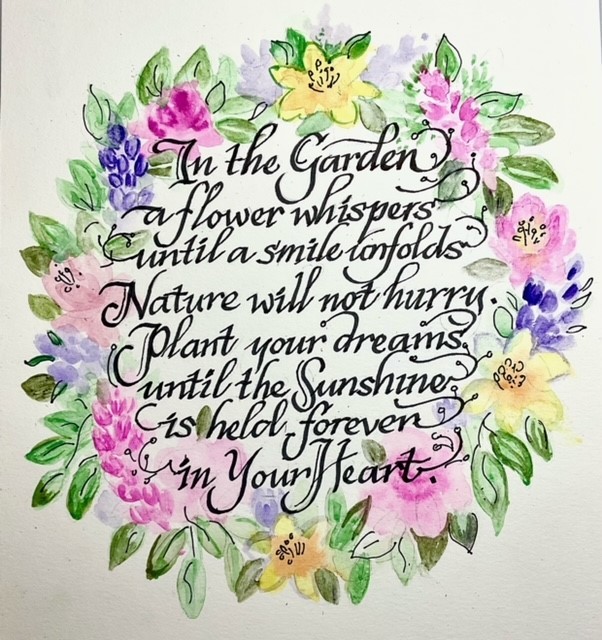 In the Garden
a flower whispers
until a smile unfolds
Nature will not hurry.
Plant your dreams
until the Sunshine
is held forever
in Your Heart.